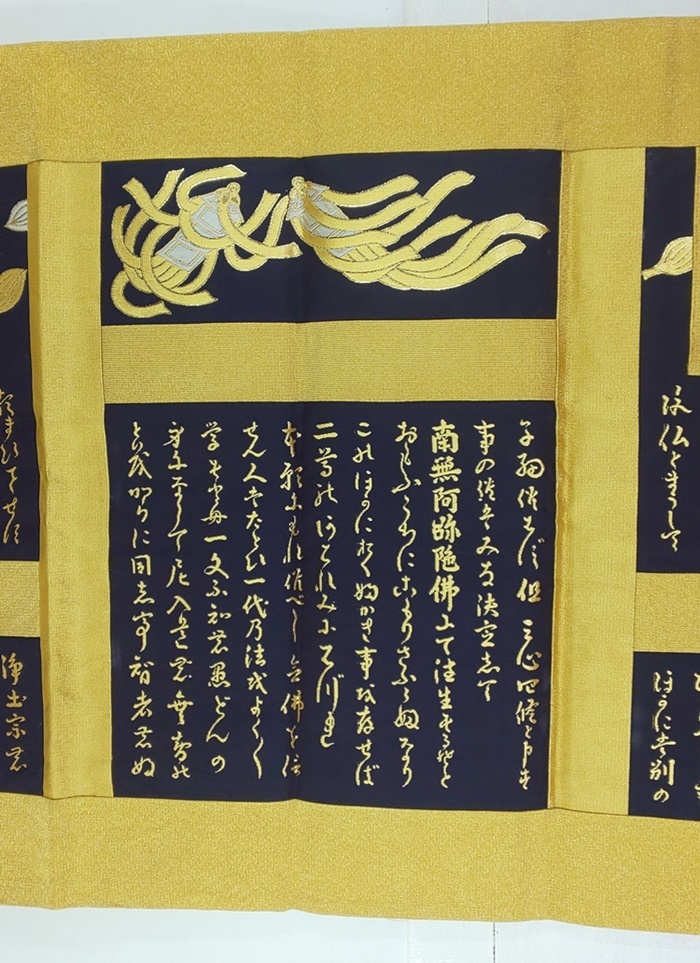 仏とまうして
ほかに者別の
子細候はす但三心四修と申す
事の候はみな決定して
南無阿弥陀佛にて往生するそと
おもふうちにこもりさふらふなり
このほかにおくふかき事を存せば
二尊のあはれみにはづれ
本願にもれ候べし念佛を信
せん人はたとひ一代の法をよくよく
学すとも一文不知の愚どんの
身になして尼入道の無智の
ともからに同して智者のふ
るまひをせす
浄土宗の